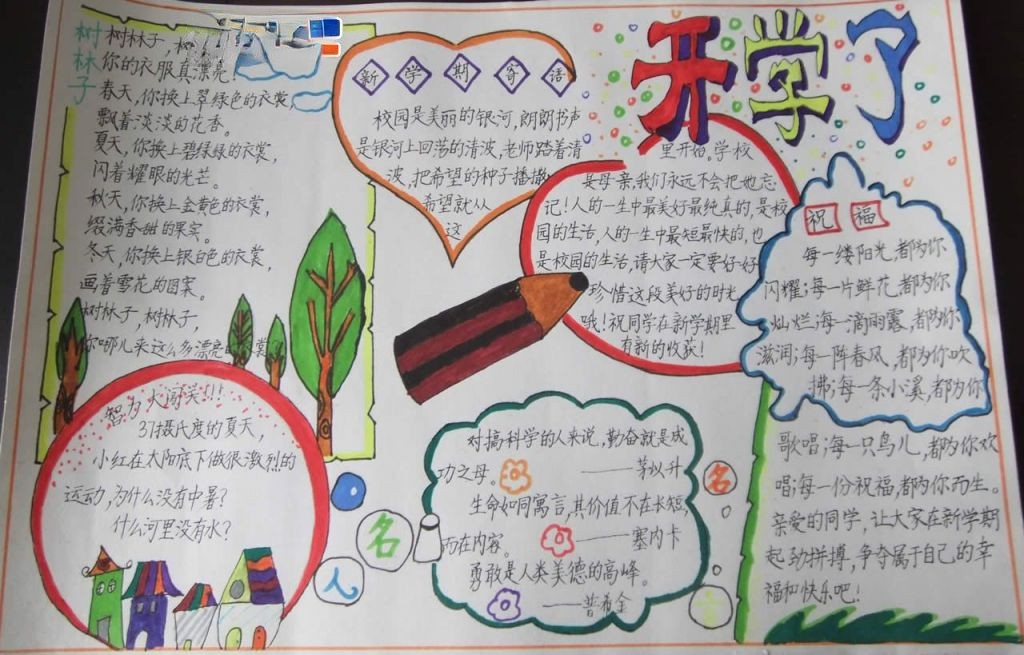 开学了
树林子
树林子，树
你的衣服真漂亮！
春天，你换上翠绿色的衣裳，
飘着淡淡的花香。
夏天，你换上碧绿绿的衣裳，
闪着耀眼的光芒。
秋天，你换上金黄色的衣裳，
缀满香甜的果实。
冬天，你换上银白色的衣裳，
画着雪花的图案。
树林子，树林子，
你哪儿来这么多漂亮的衣裳
新学期寄语
校园是美丽的银河，朗朗书声
是银河上回荡的清波，老师踏着清
波，把希望的种子播撒
希望就从
这
里开始。学校
是母亲，我们永远不会把她忘
记！人的一生中最美好最纯真的，是校
园的生活，人的一生中最短最快的，也
是校园的生活，请大家一定要好好
珍惜这段美好的时光
哦！祝同学在新学期里
有新的收获！
祝福
每一缕阳光，都为你
闪耀；每一片鲜花，都为你
灿烂；每一滴雨露，都为你
滋润；每一阵春风，都为你吹
拂；每一条小溪，都为你
歌唱；每一只鸟儿，都为你欢
唱；每一份祝福，都为你而生。
亲爱的同学，让大家在新学期
起劲拼搏，争夺属于自己的幸
福和快乐吧！
智力大闯关！！！
37摄氏度的夏天，
小红在太阳底下做很激烈的
运动，为什么没有中暑？
什么河里没有水？
名人名言
对搞科学的人来说，勤奋就是成
功之母。
——茅以升
生命如同寓言，其价值不在长短，
而在内容。
——塞内卡
勇敢是人类美德的高峰。
——普希金